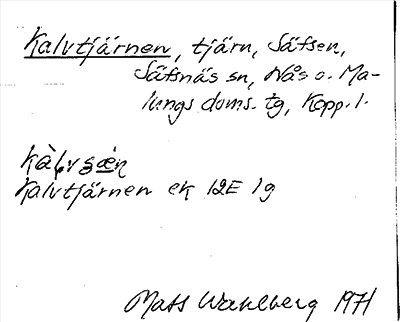 Kalvtjärnen, tjärn, Säfsen,
Säfsnäs sn, Nås o. Ma-
lungs doms. tg, Kopp. l.
Kalvtjärnen ek 12E 1g
Mats Wahlberg 1971